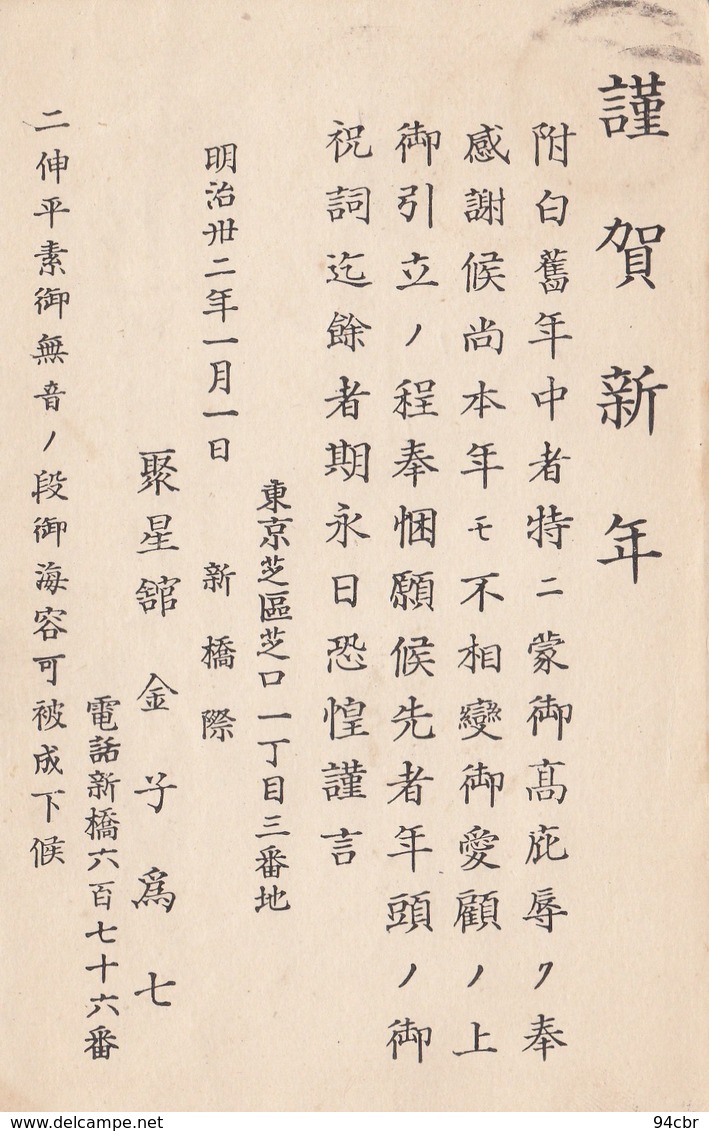 謹賀新年
附白舊年中者特ニ蒙御髙庇辱ク奉
感謝候尚本年モ不相變御愛顧ノ上
御引立ノ程奉悃願候先者年頭ノ御
祝詞迄餘者期永日恐惶謹言
東京芝區芝口一丁目三番地
明治卅二年一月一日
新橋際
聚星舘 金子爲七
電話新橋六百七十六番
二伸平素御無音ノ段御海容可被成下候
www.delcampe.net
94cbr